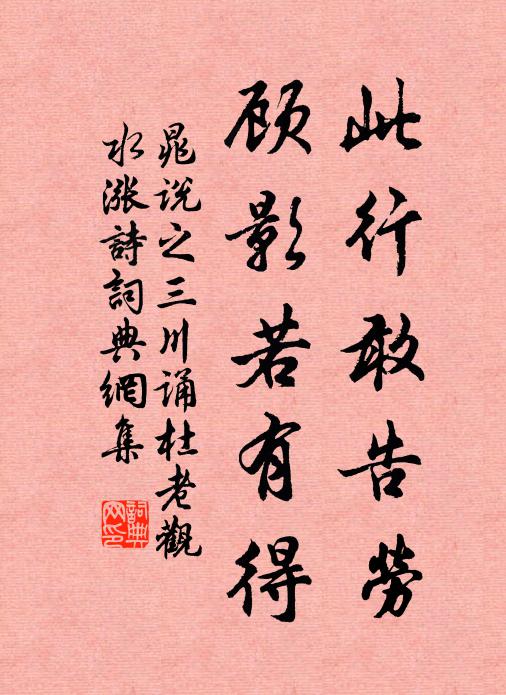 此行敢告勞
顾影若有得
晁说之三川诵杜老觀
水漲詩詞典網集
詞典网印